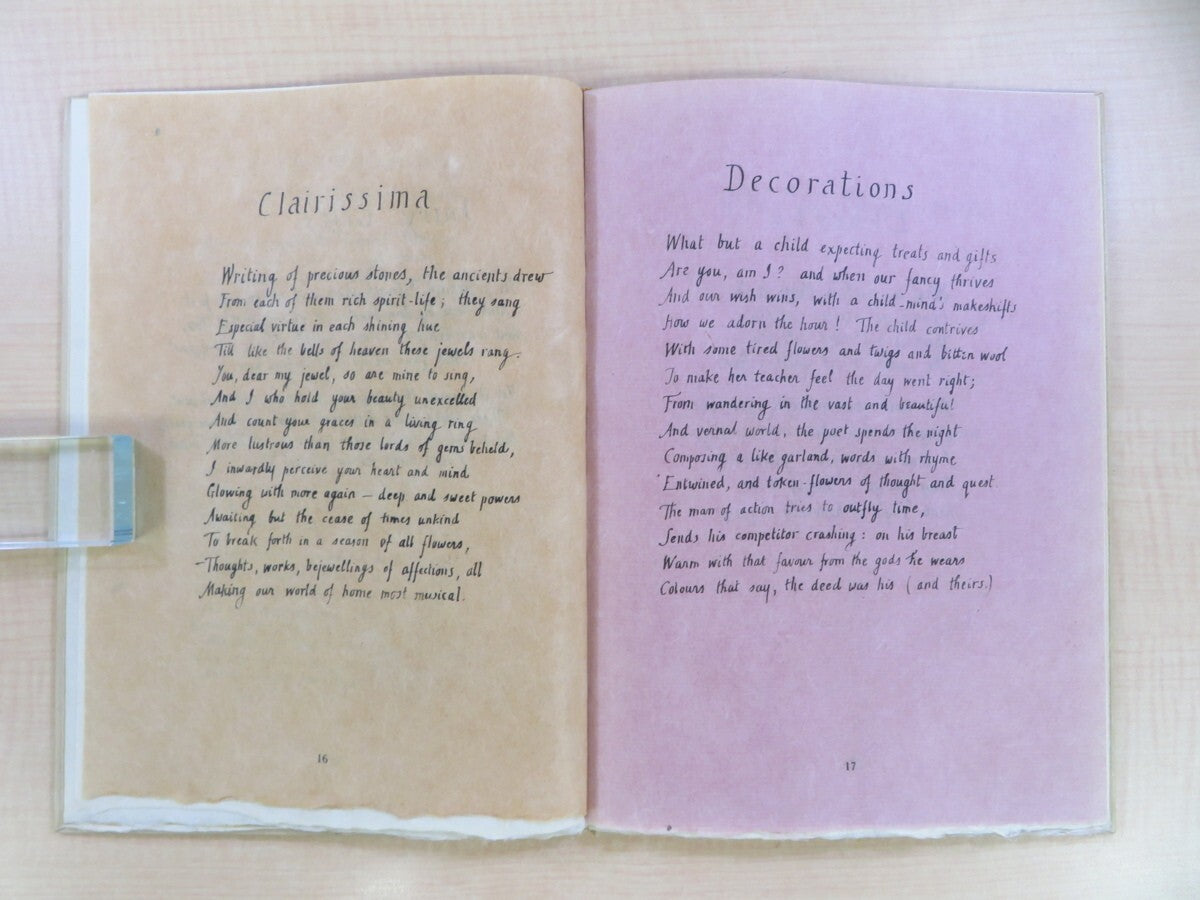 Clairissima
Writing of precious stones, the ancients drew
From each of them rich spirit-life; they sang
Especial virtue in each shining hue
Till like the bells of heaven these jewels rang.
You, dear my jewel, so are mine to sing,
And I who hold your beauty unexcelled
And count your graces in a living ring
More lustrous than those lords of gems beheld,
I inwardly perceive your heart and mind
Glowing with more again – deep and sweet powers
Awaiting but the cease of times unkind
To break forth in a season of all flowers,
–Thoughts, works, bejewellings of affections, all
Making our world of home most musical.
16
Decorations
What but a child expecting treats and gifts
Are you, am I? and when our fancy thrives
And our wish wins, with a child-mind's makeshifts
How we adorn the hour! The child contrives
With some tired flowers and twigs and bitten wool
To make her teacher feel the day went right;
From wandering in the vast and beautiful
And vernal world, the poet spends the night
Composing a like garland, words with rhyme
Entwined, and token-flowers of thought and quest.
The man of action tries to outfly time,
Sends his competitor crashing: on his breast
Warm with that favour from the gods he wears
Colours that say, the deed was his (and theirs.)
17